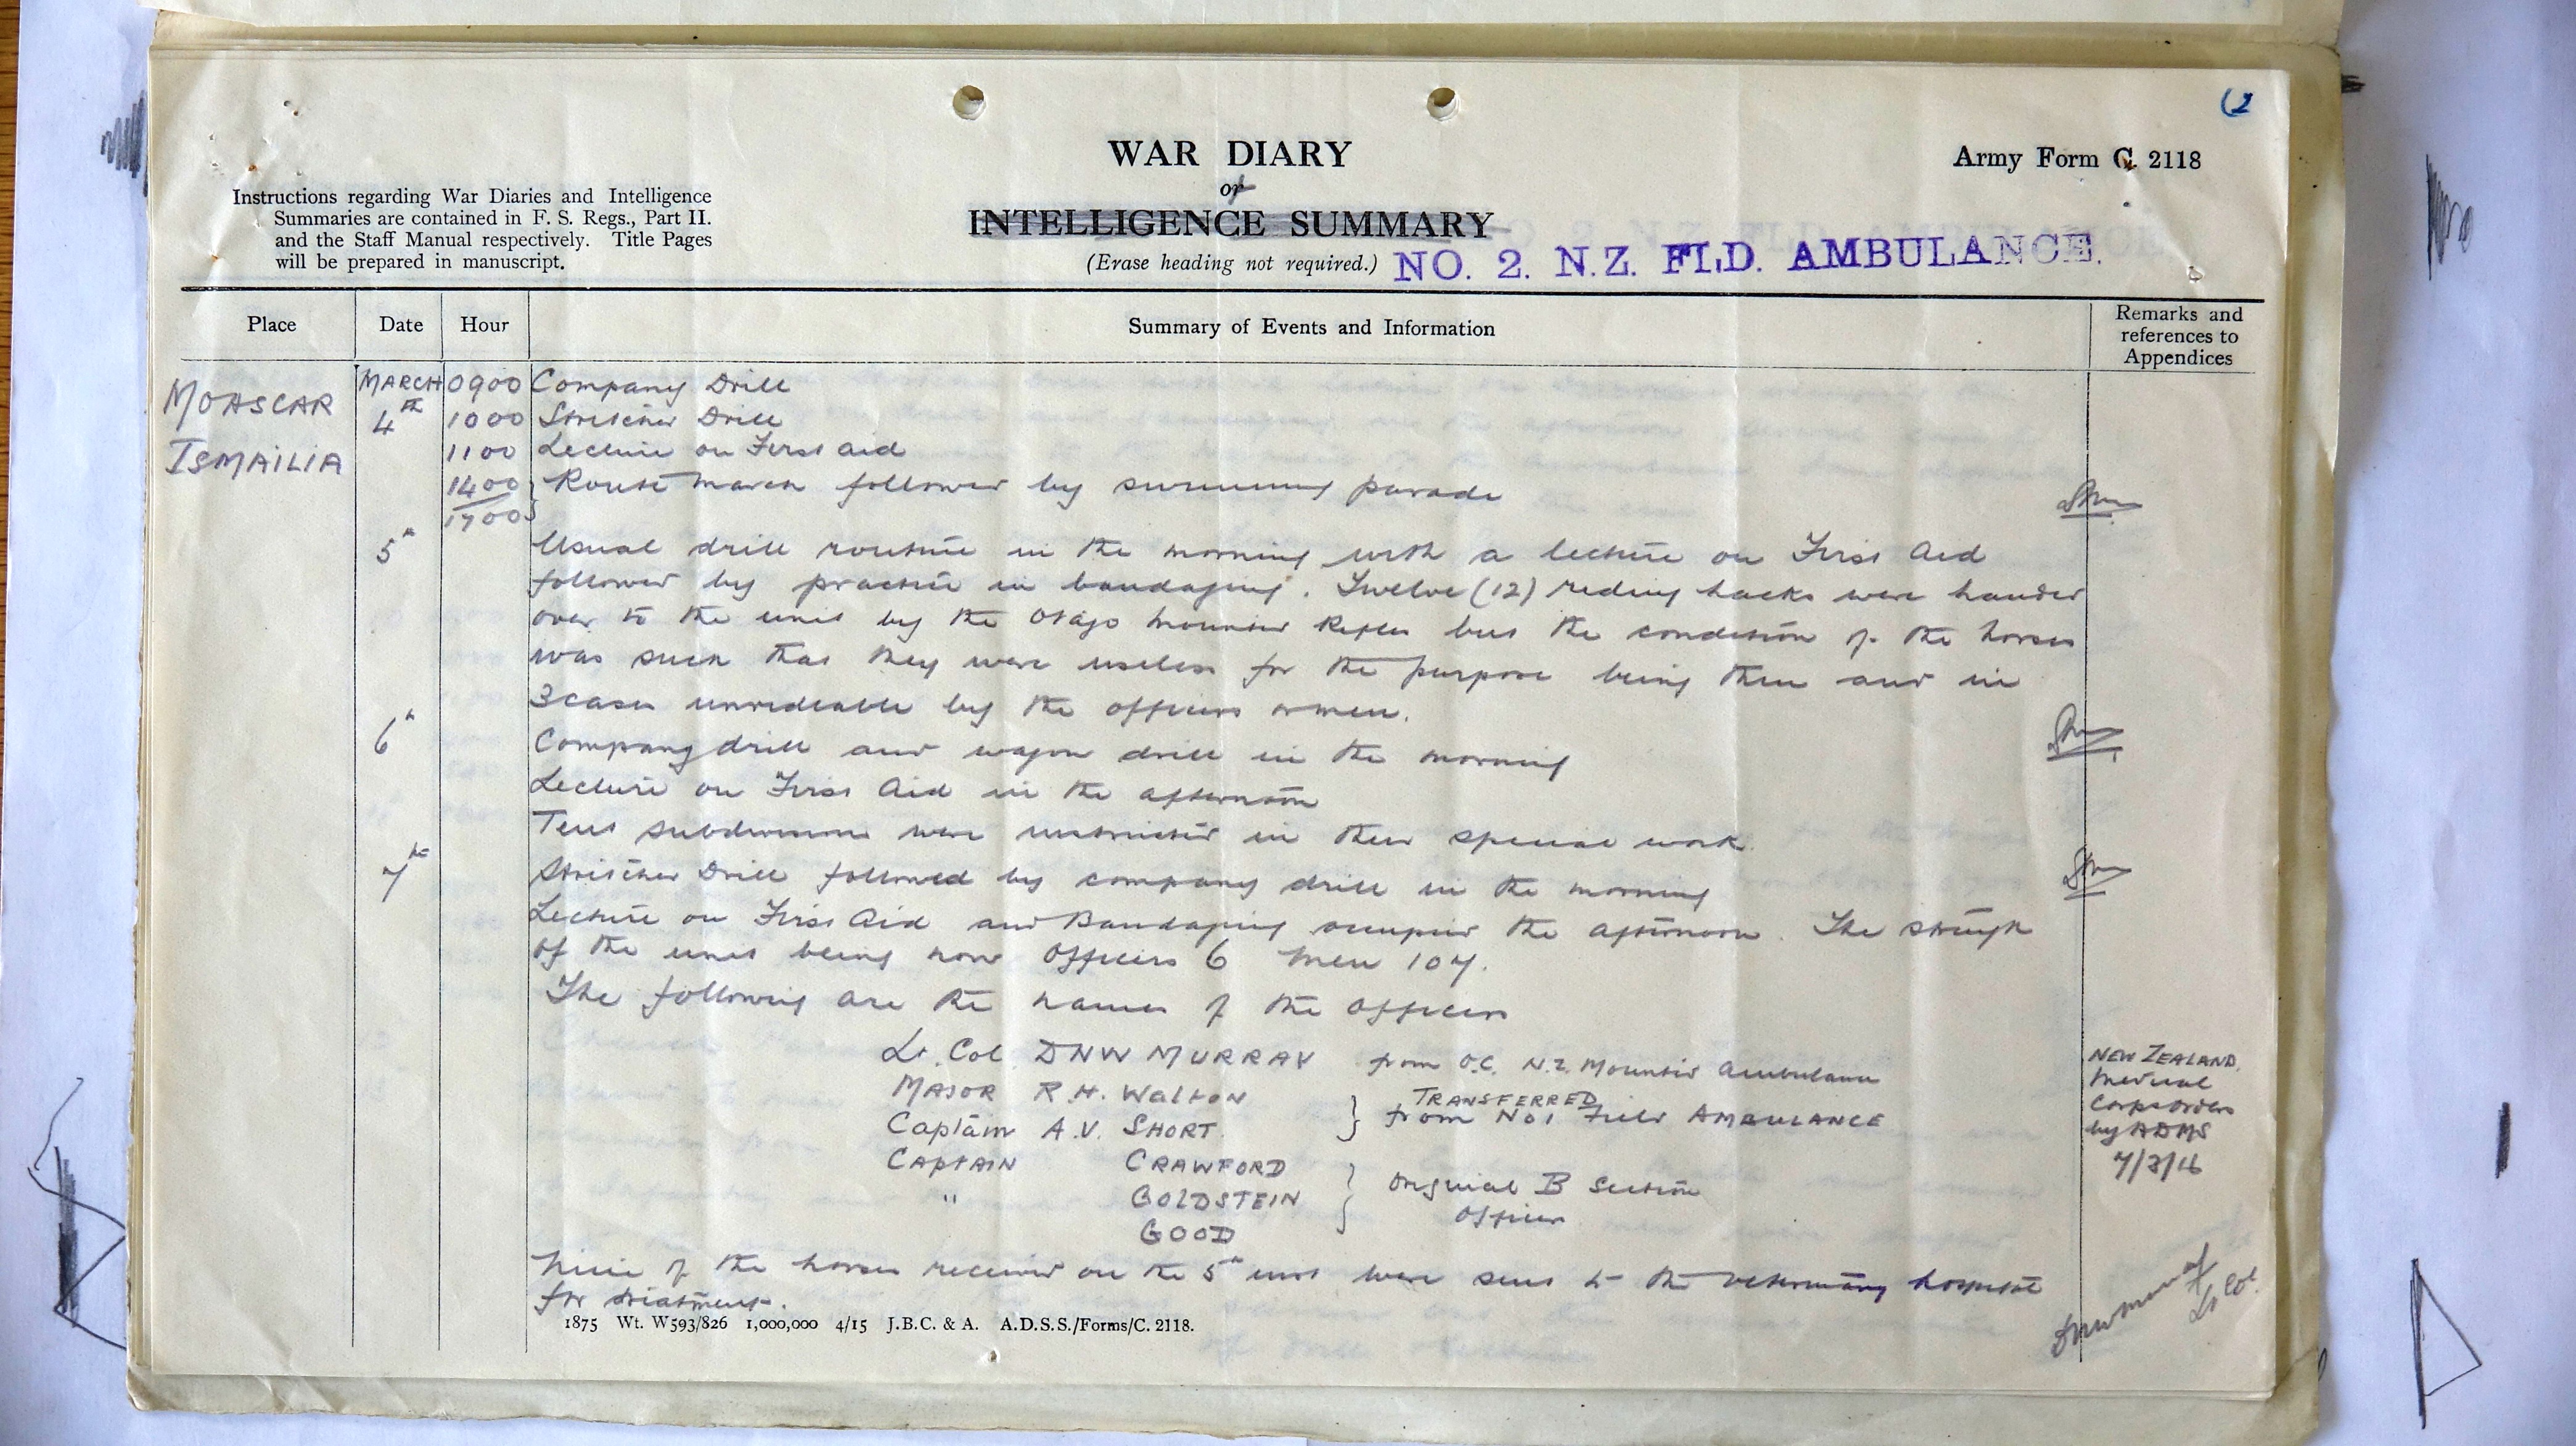 (2
WAR DIARY
or
INTELLIGENCE SUMMARY
(Erase heading not required.)
Army Form C. 2118
Instructions regarding War Diaries and Intelligence
Summaries are contained in F. S. Regs., Part II.
and the Staff Manual respectively. Title Pages
will be prepared in manuscript.
NO. 2. N.Z. FLD. AMBULANCE.
Place Date Hour Summary of Events and Information Remarks and references to Appendices
MOASCAR MARCH 0900 Company Drill
4th 1000 Stretcher Drill
ISMAILIA 1100 Lecture on First aid
1400 Route march followed by swimming parade
1700
5th Usual drill routine in the morning with a lecture on First Aid
followed by practice in bandaging. Twelve (12) riding hacks were handed
over to the unit by the Otago Mounted Rifles but the condition of the horses
was such that they were useless for the purpose being thin and in
3 cases unrideable by the officers or men.
6th Company drill and wagon drill in the morning
Lecture on First Aid in the afternoon
Tent subdivisions were instructed in their special work.
7th Stretcher Drill followed by company drill in the morning
Lecture on First Aid and Bandaging occupied the afternoon. The strength
of the unit being now Officers 6 Men 107.
The following are the names of the Officers
Lt. Col DNW MURRAY from O.C. N.Z. Mounted Ambulance
MAJOR R.H. Walton TRANSFERRED
Captain A.V. SHORT. from No 1 Field AMBULANCE
CAptAIN CRAWFORD
" GOLDSTEIN Original B Section
GOOD Officers
NEW ZEALAND.
Medical
Corps orders
by ADMS
7/3/16
Nine of the horses received on the 5th inst were sent to the veterinary hospital
for treatment.
DNW Murray
Lt Col.
1875 Wt. W593/826 1,000,000 4/15 J.B.C. & A. A.D.S.S./Forms/C. 2118.